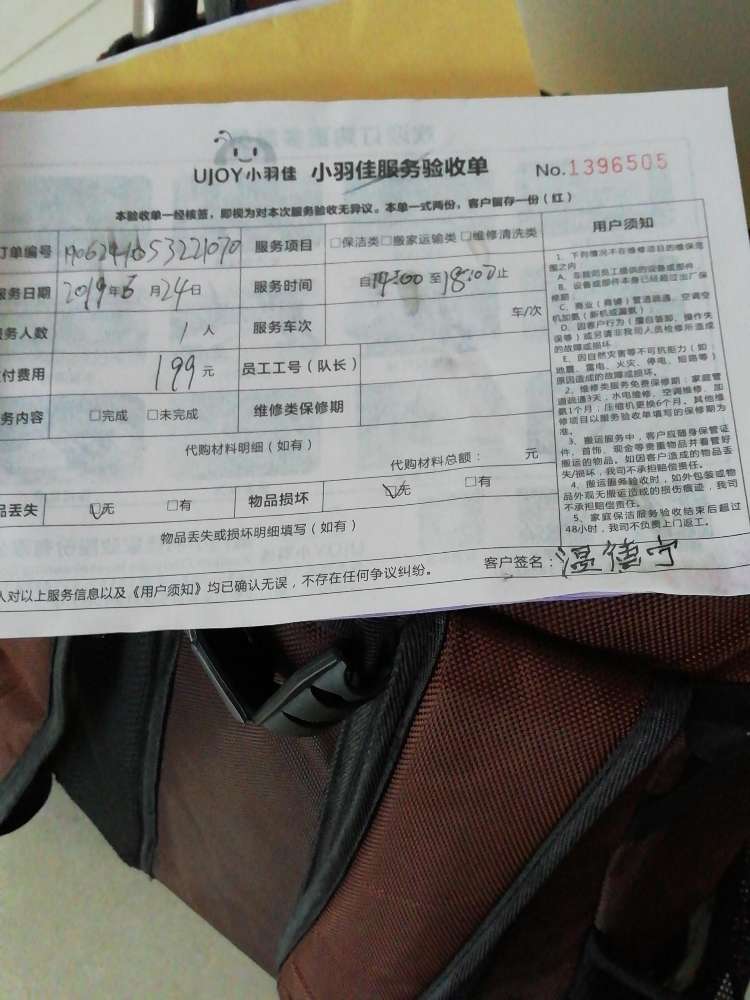 UJOY小羽佳 小羽佳服务验收单 No.1396505
本验收单一经核签，即视为对本次服务验收无异议。本单一式两份，客户留存一份（红）
订单编号 服务项目 □保洁类□搬家运输类□维修清洗类
服务日期 2019年6月24日 服务时间 自14:00至18:00止
务人数 1人 服务车次 车/次
付费用 199元 员工工号（队长）
务内容 □完成 □未完成 维修类保修期
代购材料明细（如有） 代购材料总额： 元
品丢失 □无 □有 物品损坏 □无 □有
物品丢失或损坏明细填写（如有）
人对以上服务信息以及《用户须知》均已确认无误，不存在任何争议纠纷。
客户签名：温德宇
用户须知
1、下列情况不在维修项目的维保范
围之内
A、非我司员工提供的设备或部件
B、设备或部件本身已经超过出厂保
修期；
C、商业（商铺）管道疏通，空调空
机加氨（新机或漏氨）；
D、因客户行为（擅自装卸、操作失
误等）或另请非我司人员检修所造成
的故障或损坏
E、因自然灾害等不可抗拒力（如
地震、雷电、火灾、停电、短路等）
原因造成的故障或损坏。
2、维修类服务免费保修期：家庭管
道疏通3天，水电维修、空调维修、加
氨1个月；压缩机更换6个月。其他维
修项目以服务验收单填写的保修期为
准。
3、搬运服务中，客户应随身保管证
件、首饰、现金等贵重物品并看管好
搬运的物品。如因客户造成的物品丢
失/损坏，我司不承担赔偿责任。
4、搬运服务验收时，如外包装或物
品外观无搬运造成的损伤痕迹，我司
不承担赔偿责任。
5、家庭保洁服务验收结束后超过
48小时，我司不负责上门返工。